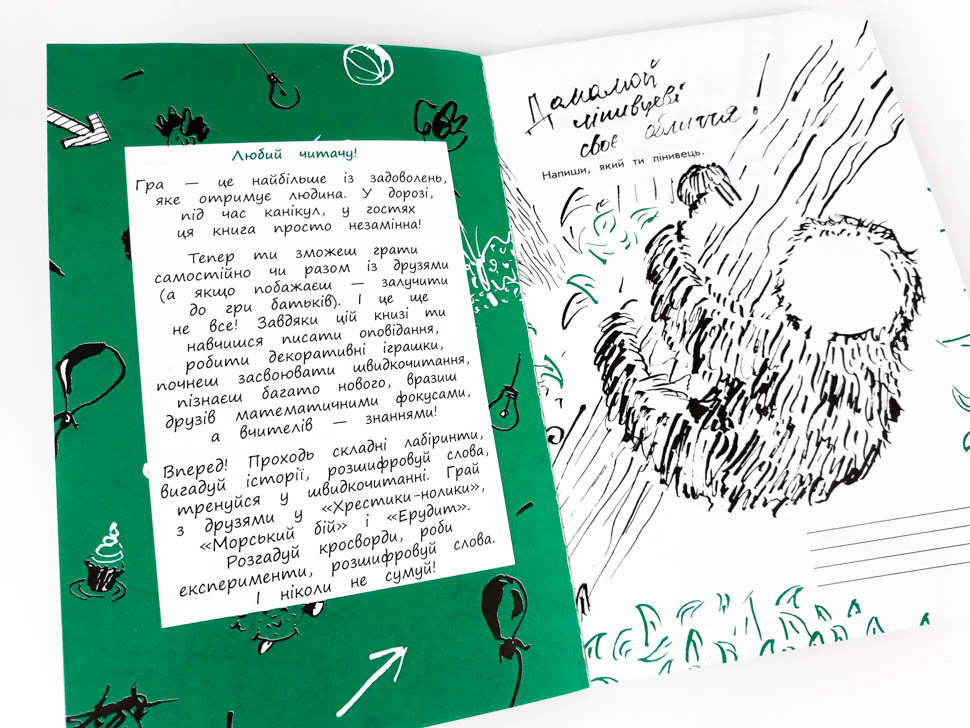 Любий читачу!
Гра — це найбільше із задоволень,
яке отримує людина. У дорозі,
під час канікул, у гостях
ця книга просто незамінна!
Тепер ти зможеш грати
самостійно чи разом із друзями
(а якщо побажаєш — залучити
до гри батьків). І це ще
не все! Завдяки цій книзі ти
навчишся писати оповідання,
робити декоративні іграшки,
почнеш засвоювати швидкочитання,
пізнаєш багато нового, вразиш
друзів математичними фокусами,
а вчителів — знаннями!
Вперед! Проходь складні лабіринти,
вигадуй історії, розшифровуй слова,
тренуйся у швидкочитанні. Грай
з друзями у «Хрестики-нолики»,
«Морський бій» і «Ерудит».
Розгадуй кросворди, роби
експерименти, розшифровуй слова.
І ніколи не сумуй!
Домалюй
лінивцеві
своє обличчя!
Напиши, який ти лінивець.